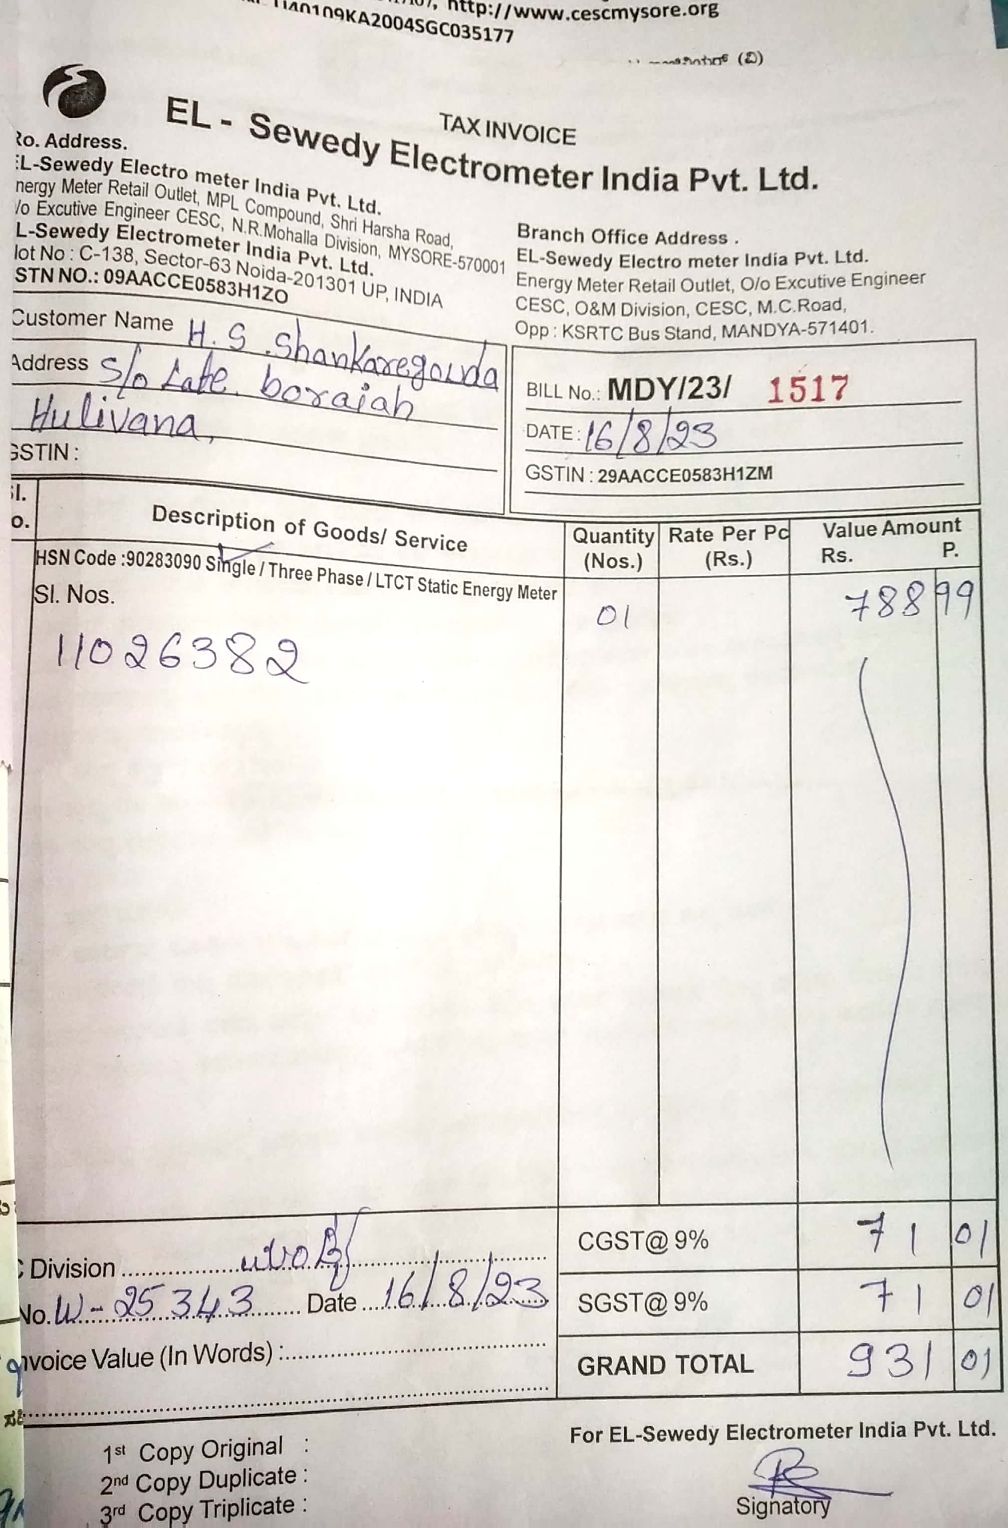 http://www.cescmysore.org
(ವಿ)
TAX INVOICE
EL - Sewedy Electrometer India Pvt. Ltd.
Ro. Address.
EL-Sewedy Electro meter India Pvt. Ltd.
nergy Meter Retail Outlet, MPL Compound, Shri Harsha Road,
/o Excutive Engineer CESC, N.R.Mohalla Division, MYSORE-570001
L-Sewedy Electrometer India Pvt. Ltd.
lot No : C-138, Sector-63 Noida-201301 UP, INDIA
STN NO.: 09AACCE0583H1ZO
Branch Office Address .
EL-Sewedy Electro meter India Pvt. Ltd.
Energy Meter Retail Outlet, O/o Excutive Engineer
CESC, O&M Division, CESC, M.C.Road,
Opp : KSRTC Bus Stand, MANDYA-571401.
Customer Name H. S. Shankaregowda
Address S/o Late. boraiah
Hulivana,
GSTIN :
BILL No.: MDY/23/ 1517
DATE : 16/8/23
GSTIN : 29AACCE0583H1ZM
Sl. Description of Goods/ Service Quantity Rate Per Pc Value Amount
o. (Nos.) (Rs.) Rs. P.
HSN Code :90283090 Single / Three Phase / LTCT Static Energy Meter
Sl. Nos. 01 788 99
11026382
CGST@ 9% 71 01
Division
No. W-25343 Date 16/8/23 SGST@ 9% 71 01
nvoice Value (In Words) : GRAND TOTAL 931 01
For EL-Sewedy Electrometer India Pvt. Ltd.
1st Copy Original :
2nd Copy Duplicate :
3rd Copy Triplicate :
Signatory